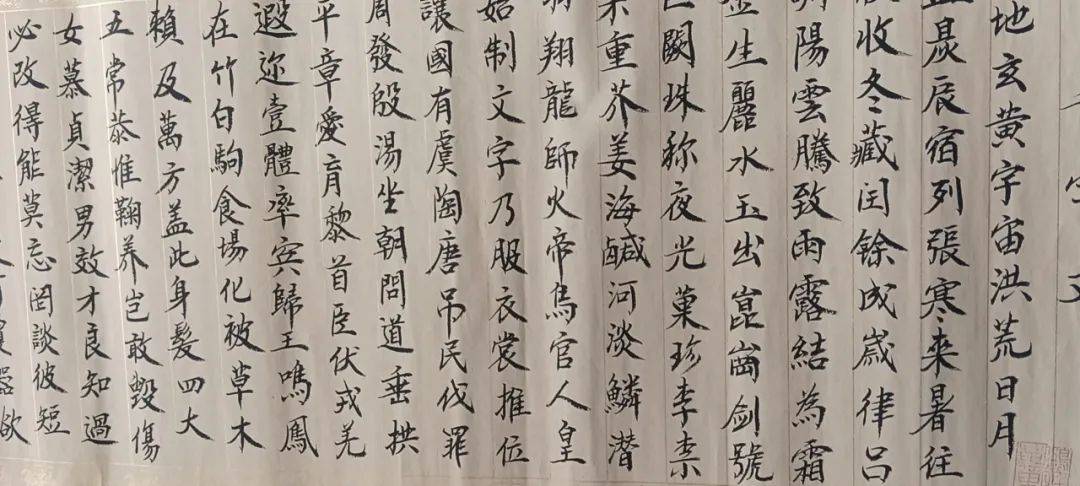 字文
地玄黄宇宙洪荒日月
昃辰宿列張寒来暑往
收冬藏闰餘成歲律吕
陽雲騰致雨露結為霜
金生麗水玉出崑崗劍號
闕珠称夜光菓珍李柰
菜重芥姜海鹹河淡鱗潜
翔龍師火帝鳥官人皇
始制文字乃服衣裳推位
讓國有虞陶唐吊民伐罪
周發殷湯坐朝問道垂拱
平章愛育黎首臣伏戎羌
遐迩壹體率賓歸王鳴鳳
在竹白駒食場化被草木
賴及萬方盖此身髮四大
五常恭惟鞠养岂敢毀傷
女慕貞潔男效才良知過
必改得能莫忘罔談彼短
器欲